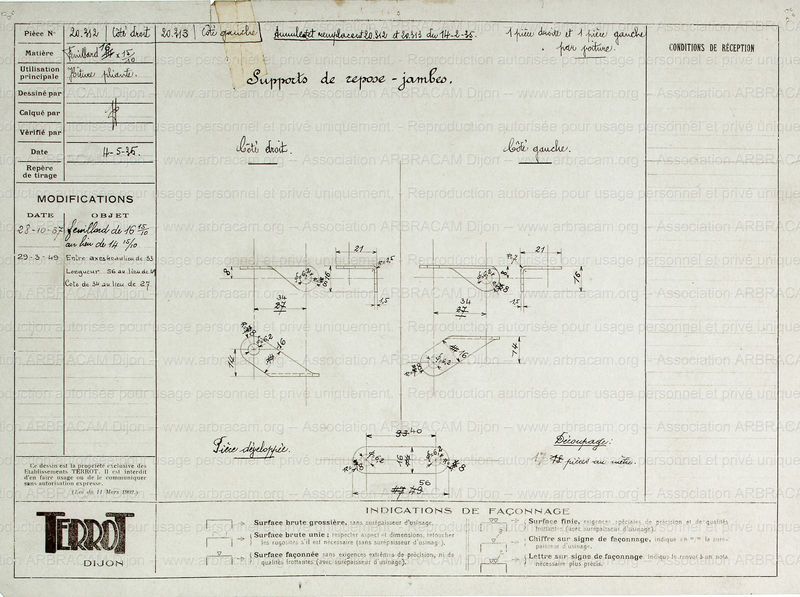 Pièce N° 20.312 Côté droit 20.313 Côté gauche Annulent et remplacent 20.312 et 20.313 du 14-2-35. 1 pièce droite et 1 pièce gauche
par voiture.
Matière Feuillard 16 x 15/10
Utilisation principale Voiture pliante.
Dessiné par
Calqué par
Vérifié par
Date 4-5-35.
Repère de tirage
CONDITIONS DE RÉCEPTION
Supports de repose-jambes.
Côté droit.
Côté gauche.
MODIFICATIONS
DATE OBJET
28-10-37 feuillard de 16 15/10
au lieu de 14 15/10
29-3-49 Entre axes 40 au lieu de 33
Longueur 56 au lieu de 49
Cote de 34 au lieu de 27
21
8
16
1,5
34
27
14
16
21
16
1,5
34
27
16
14
Pièce développée.
33 40
16
56
47 49
Découpage:
17 pièces au mètre.
Ce dessin est la propriété exclusive des
Etablissements TERROT. Il est interdit
d'en faire usage ou de le communiquer
sans autorisation expresse.
(Loi du 11 Mars 1902.)
TERROT
DIJON
INDICATIONS DE FAÇONNAGE
Surface brute grossière, sans surépaisseur d'usinage.
Surface brute unie: respecter aspect et dimensions, retoucher
les rugosités s'il est nécessaire (sans surépaisseur d'usinage).
Surface façonnée sans exigences extrêmes de précision, ni de
qualités frottantes (avec surépaisseur d'usinage).
Surface finie, exigences spéciales de précision et de qualités
frottantes (avec surépaisseur d'usinage).
Chiffre sur signe de façonnage, indique en m/m la suré-
paisseur d'usinage.
Lettre sur signe de façonnage. Indique le renvoi à un nota
nécessaire plus précis.
www.arbracam.org -- Association ARBRACAM Dijon -- Reproduction autorisée pour usage personnel et privé uniquement.